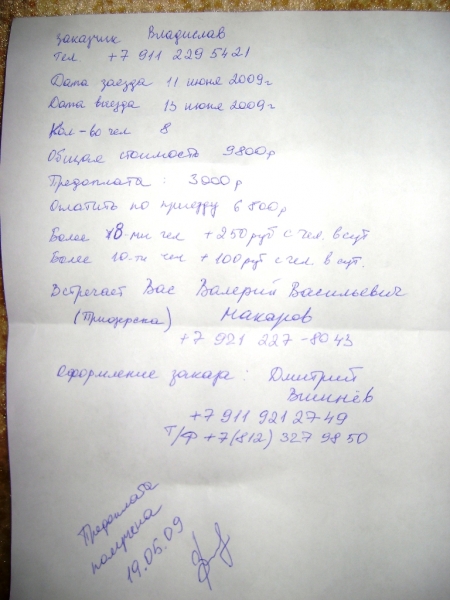 Заказчик Владислав
Тел. +7 911 229 5421
Дата заезда 11 июня 2009г
Дата выезда 13 июня 2009г
Кол-во чел 8
Общая стоимость 9800р
Предоплата : 3000р
Оплатить по приезду 6800р
Более 8-ми чел +250руб с чел. в сут
Более 10-ти чел +100руб с чел. в сут.
Встречает Вас Валерий Васильевич
(Приозерск) Макаров
+7 921 227-8043
Оформление заказа : Дмитрий
Вишнёв
+7 911 921 27 49
Т/Ф +7(812) 327 98 50
Предоплата
получена
19.05.09